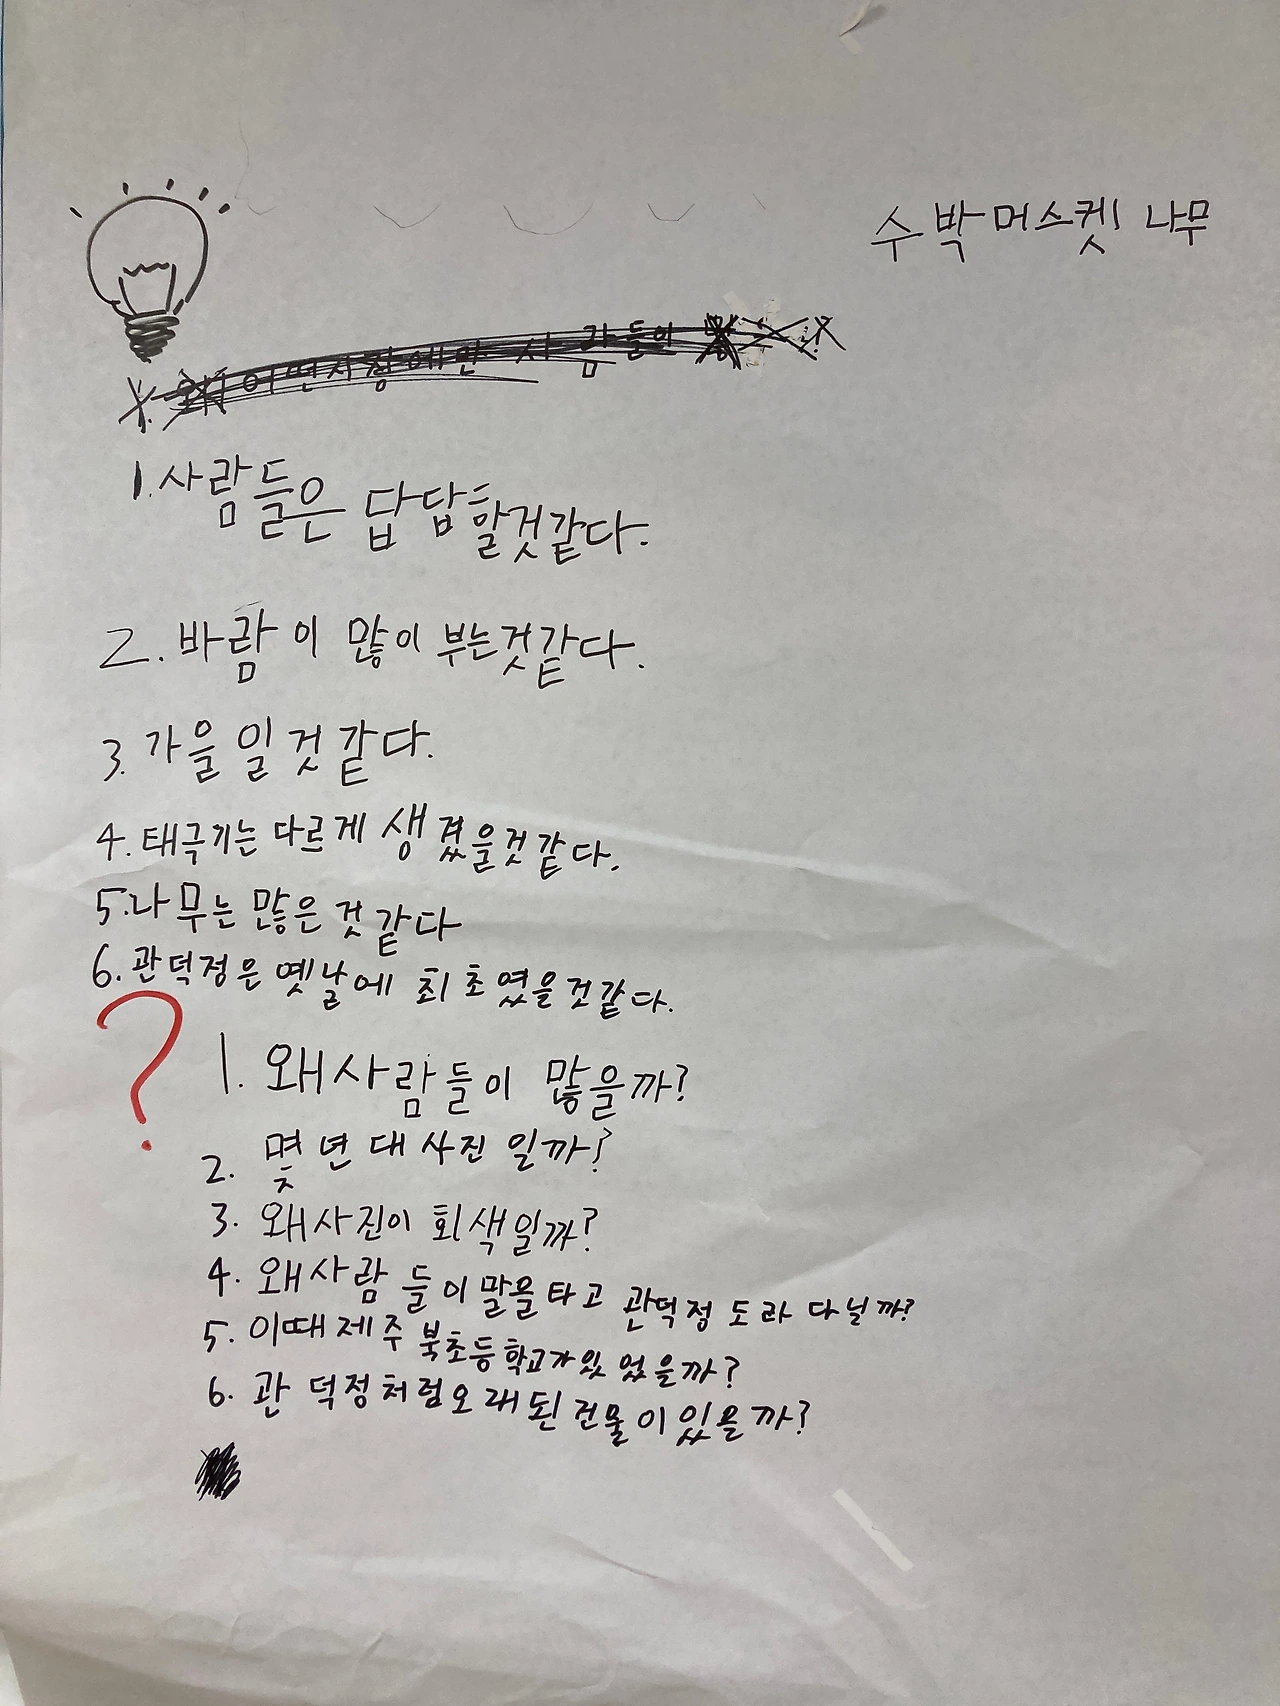 수박머스켓 나무
어떤시장에만 사람들이
1. 사람들은 답답할것같다.
2. 바람이 많이 부는것같다.
3. 가을 일 것 같다.
4. 태극기는 다르게 생겼을것같다.
5. 나무는 많은 것 같다
6. 관덕정은 옛날에 최초였을것같다.
?
1. 왜사람들이 많을까?
2. 몇년대 사진 일까?
3. 왜사진이 회색일까?
4. 왜사람 들이 말을타고 관덕정 도라 다닐까?
5. 이때제주 북초등학교가있었을까?
6. 관덕정처럼오래된건물이있을까?